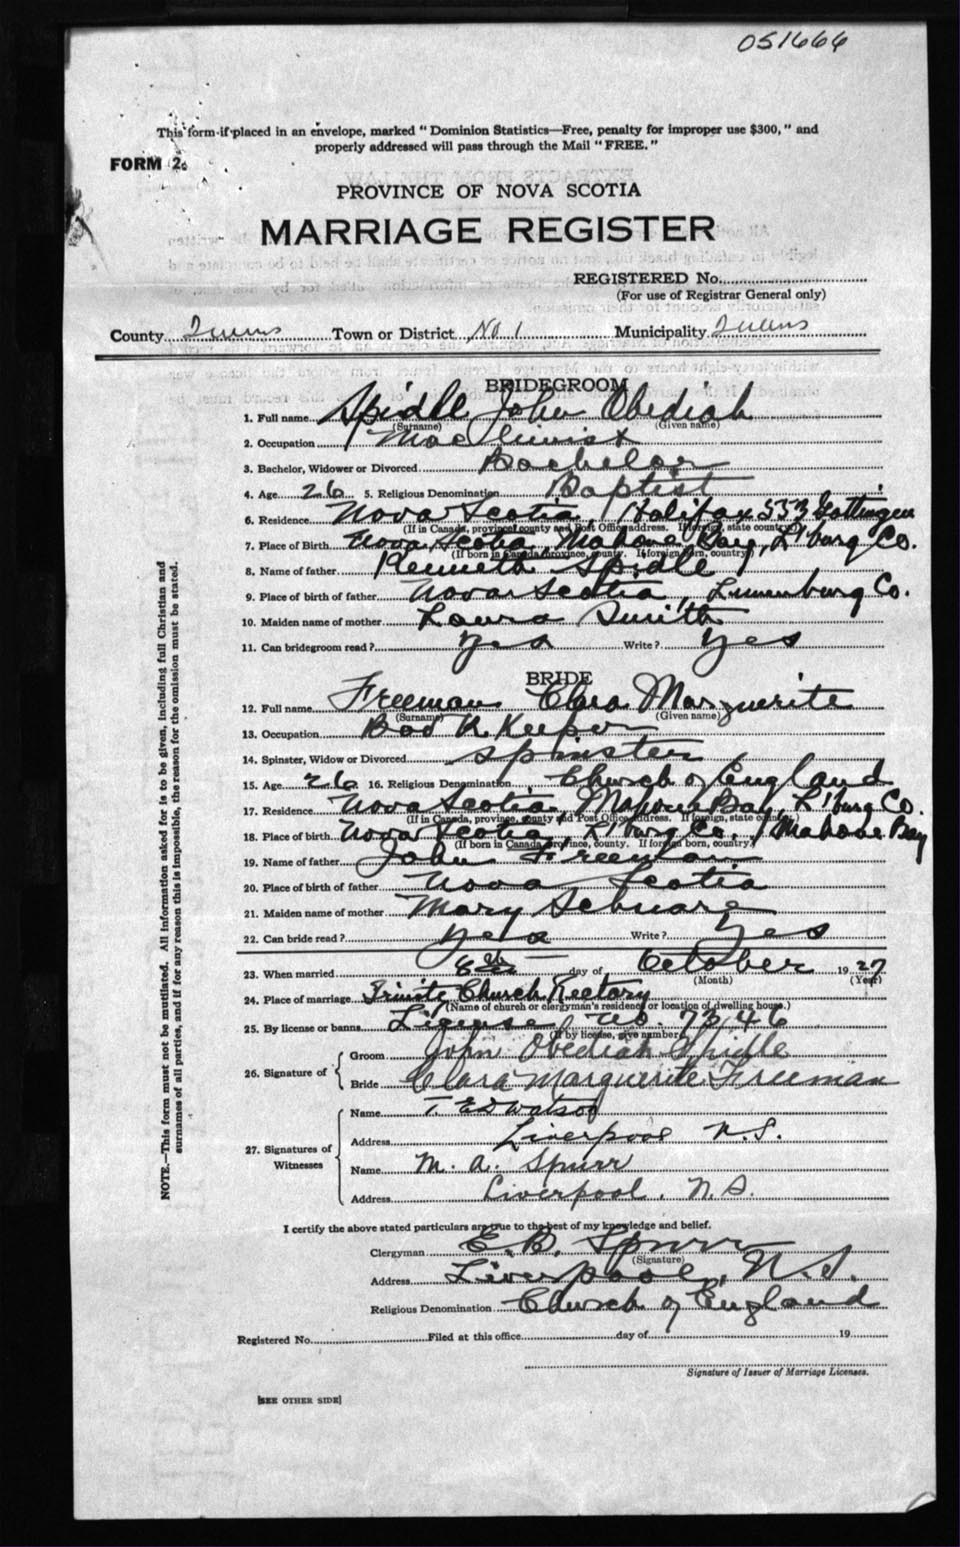 051666
This form if placed in an envelope, marked "Dominion Statistics—Free, penalty for improper use $300," and
properly addressed will pass through the Mail "FREE."
FORM 2.
PROVINCE OF NOVA SCOTIA
MARRIAGE REGISTER
REGISTERED No.
(For use of Registrar General only)
County Queens Town or District No. 1 Municipality Queens
BRIDEGROOM
1. Full name Spidle John Obediah
(Surname) (Given name)
2. Occupation Machinist
3. Bachelor, Widower or Divorced Bachelor
4. Age 26 5. Religious Denomination Baptist
6. Residence Nova Scotia, Halifax 553 Gottingen
(If in Canada, province, county and Post Office address. If foreign, state country)
7. Place of Birth Nova Scotia, Mahone Bay, L'burg Co.
(If born in Canada province, county. If foreign born, country)
8. Name of father Kenneth Spidle
9. Place of birth of father Nova Scotia, Lunenburg Co.
10. Maiden name of mother Laura Smith
11. Can bridegroom read? Yes Write? Yes
BRIDE
12. Full name Freeman Clara Marguerite
(Surname) (Given name)
13. Occupation Book Keeper
14. Spinster, Widow or Divorced Spinster
15. Age 26 16. Religious Denomination Church of England
17. Residence Nova Scotia, Mahone Bay, L'burg Co.
(If in Canada, province, county and Post Office address. If foreign, state country)
18. Place of birth Nova Scotia, L'burg Co. Mahone Bay
(If born in Canada province, county. If foreign born, country)
19. Name of father John Freeman
20. Place of birth of father Nova Scotia
21. Maiden name of mother Mary
22. Can bride read? Yes Write? Yes
23. When married 8th day of October 1927
(Month) (Year)
24. Place of marriage Trinity Church Rectory
(Name of church or clergyman's residence or location of dwelling house.)
25. By license or banns License no. 73146
(If by license, give number)
26. Signature of
Groom John Obediah Spidle
Bride Clara Marguerite Freeman
27. Signatures of Witnesses
Name T. Ed Watson
Address Liverpool N.S.
Name M. A. Spurr
Address Liverpool, N.S.
I certify the above stated particulars are true to the best of my knowledge and belief.
Clergyman E. B. Spurr
(Signature)
Address Liverpool, N.S.
Religious Denomination Church of England
Registered No. Filed at this office day of 19
Signature of Issuer of Marriage Licenses.
[SEE OTHER SIDE]
NOTE.—This form must not be mutilated. All information asked for is to be given, including full Christian and
surnames of all parties, and if for any reason this is impossible, the reason for the omission must be stated.